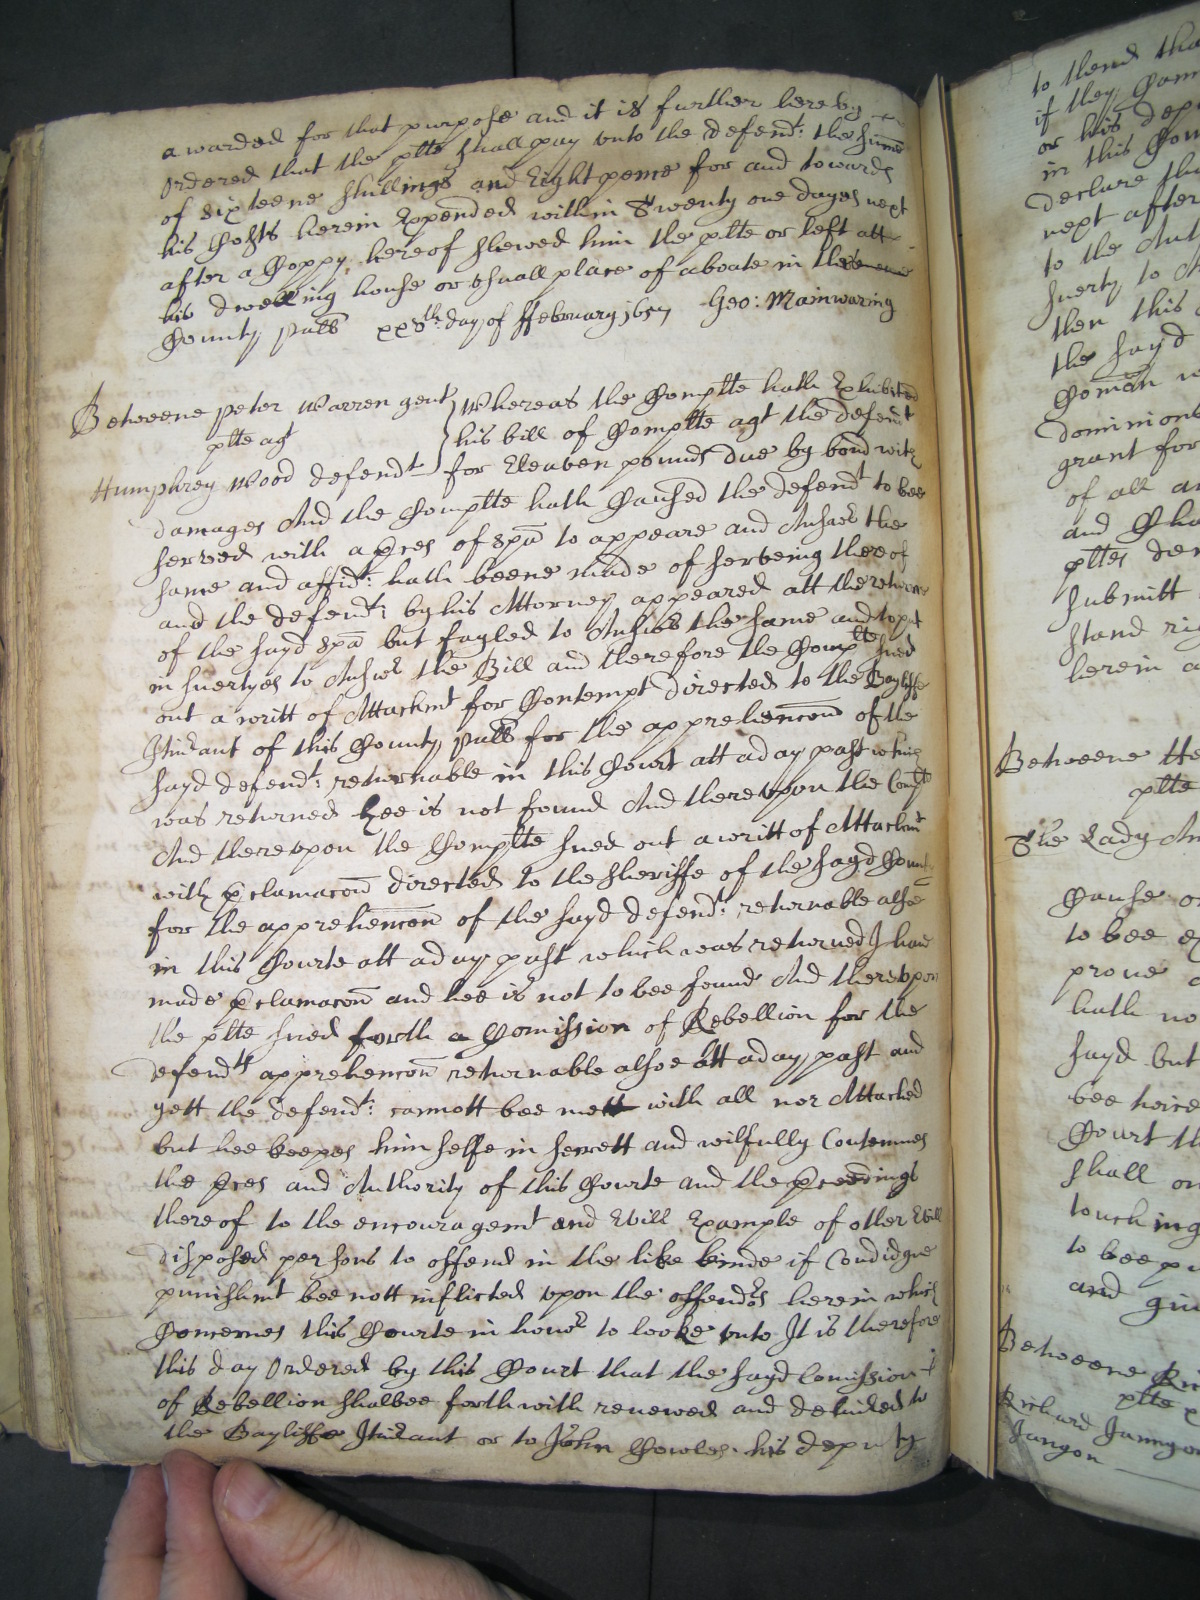 awarded for that purpose and it is further hereby
Ordered that the plte shall pay vnto the defendt: the summe
of sixteene shillings and Eight pence for and towards
his Costs herein Expended within Twenty one dayes next
after a Coppy hereof shewed him the plte or left att
his dwelling house or vsuall place of aboate in the
County pallt xxvth day of ffebruary 1657 Geo: Mainwaring
Betweene Peter Warren gent
plte agt
Humphrey Wood defendt
Whereas the Complte hath Exhibited
his bill of Complte agt the defendt
for Eleaven pounds due by bond with
damages And the Complte hath Caused the defendt to bee
served with a pces of Spa to appeare and Answr the
same and affidt: hath beene made of serveing thereof
and the defendt: by his Attorney appeared att the returne
of the sayd Spa but fayled to Answr the same and to put
in suertyes to Answr the Bill and therefore the Complte sued
out a writt of Attachmt for Contempt directed to the Bayliffe
Itinrant of this County pallt for the apprehencon of the
sayd defendt: returnable in this Court att a day past which
was returned hee is not found And therevpon the Complte
And therevpon the Complte sued out a writt of Attachmt
with pclamacon directed to the sheriffe of the sayd County
for the apprehencon of the sayd defendt: returnable alsoe
in this Courte att a day past which was returned I haue
made pclamacon and hee is not to bee found And therevpon
the plte sued forth a Comission of Rebellion for the
defendts apprehencon returnable alsoe att a day past and
yett the defendt: cannott bee mett with all nor Attached
but hee keepes him selfe in secrett and wilfully Contemnes
the pces and Authority of this Courte and the pceedings
thereof to the encouragemt and Evill Example of other Evill
disposed persons to offend in the like kinde if Condigne
punishmt bee nott inflicted vpon the offendors herein which
Concernes this Courte in honor to looke vnto It is therefore
this day Ordered by this Court that the sayd Comission
of Rebellion shalbee forthwith renewed and delivered to
the Bayliffe Itinrant or to John Cowles his deputy
to thend tha
if they
or his dep
in this Cou
declare tha
next after
to the
suerty to
then this
the sayd
Coman
dominions
grant for
of all
and
pltes den
submitt
stand
herein
Betweene
plte
The Lady An
Cause
to bee
prove
hath no
sayd but
bee
Court th
shall
touching
to bee
and
Betweene
plte
Richard